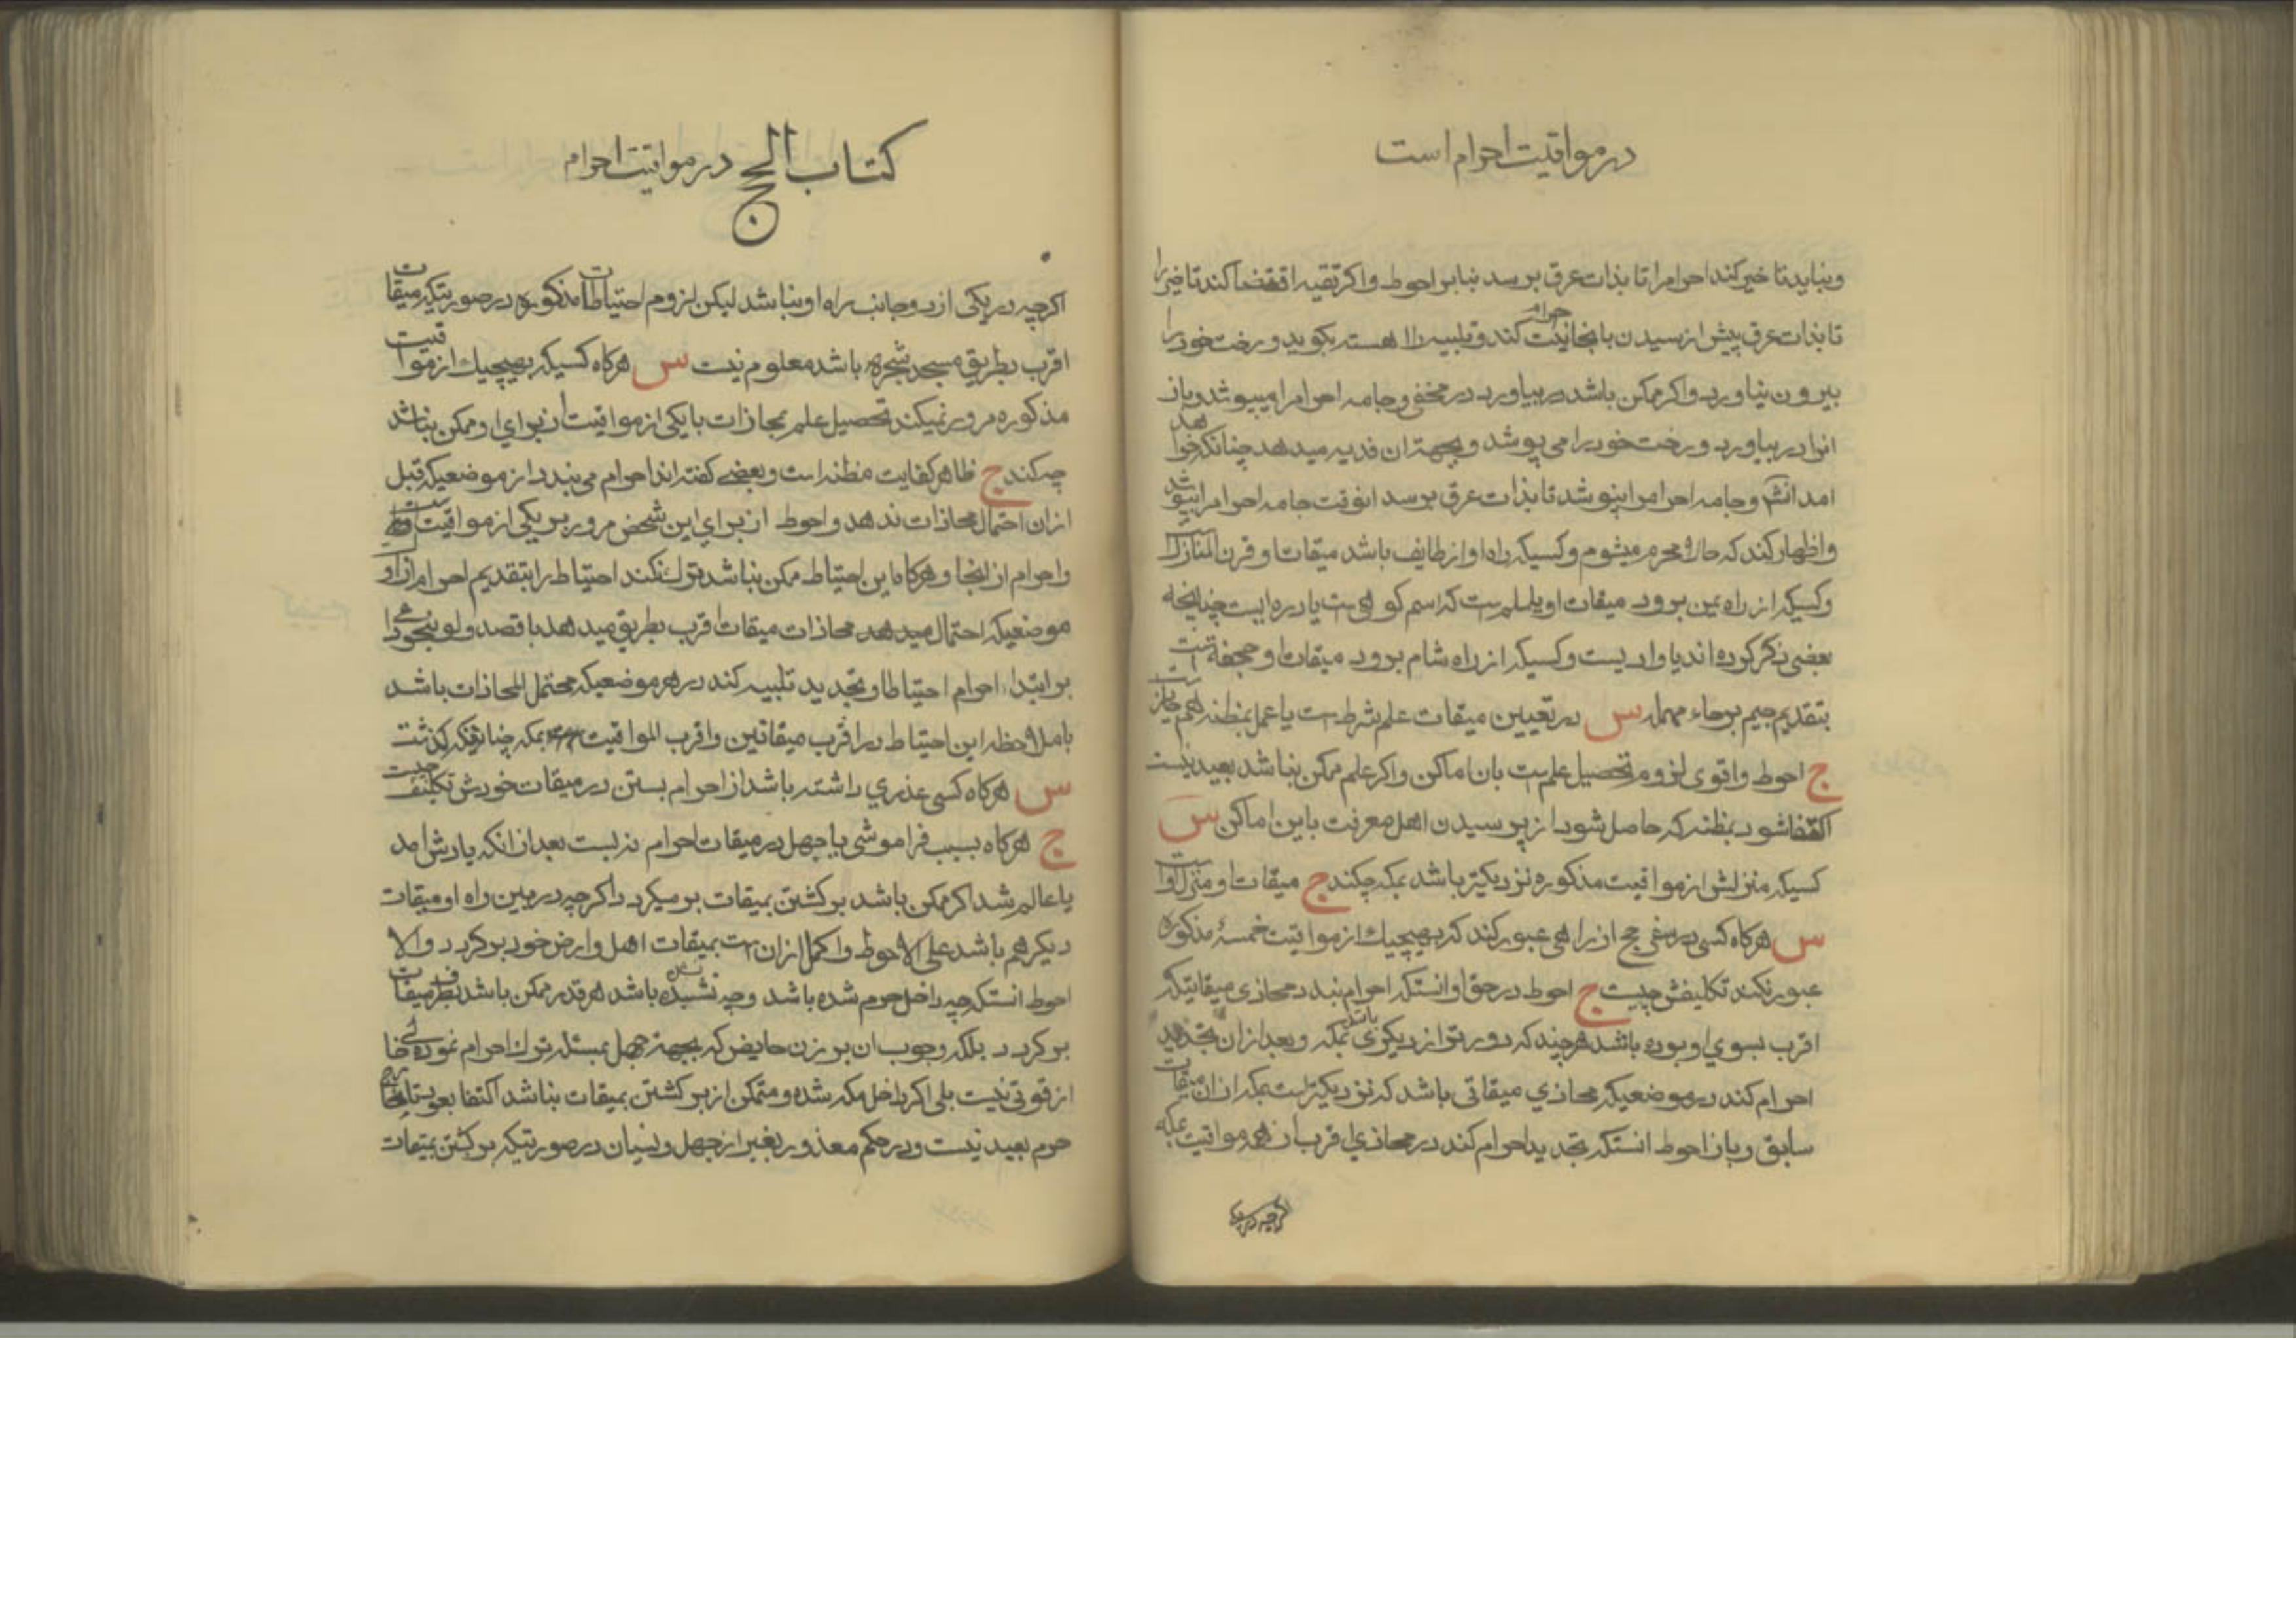 در مواقیت احرام است
و نباید تا خیر کند احرام را تا بذات عرق برسد بنا بر احوط و اکر تقیه اقتضا کند تا خیر را
تا بذات عرق پیش از رسیدن بانجا نیت احرام کند و تلبیه را اهسته بکوید و رخت خود را
بیرون نیاورد و اکر ممکن باشد در بیاورد در مخفی و جامه احرام را میپوشد و باز
انرا در بیاورد و رخت خود را می پوشد و بجهة ان فدیه میدهد چنانکه خواهد
امد انش و جامه احرام را نپوشد تا بذات عرق برسد انوقت جامه احرام را بپوشد
و اظهار کند که حالا محرم میشوم و کسیکه راه او از طایف باشد میقات او قرن المنازل است
و کسیکه از راه یمن برود میقات او یلملم است که اسم کوهی است یا دره ایست چنانچه
بعضی ذکر کرده اند یا وادیست و کسیکه از راه شام برود میقات او جحفه است
بتقدیم جیم بر حاء مهمله س در تعیین میقات علم شرط است یا عمل بمظنه هم جایز است
ج احوط و اقوی لزوم تحصیل علم است بان اماکن و اکر علم ممکن نباشد بعید نیست
اکتفا شود بمظنه که حاصل شود از پرسیدن اهل معرفت باین اماکن س
کسیکه منزلش از مواقیت مذکوره نزدیکتر باشد بمکه چکند ج میقات او منزل اوست
س هرکاه کسی در سفر حج از راهی عبور کند که بهیچیك از مواقیت خمسهٔ مذکوره
عبور نکند تکلیفش چیست ج احوط در حق او انستکه احرام بندد محاذی میقاتیکه
اقرب بسوی او بوده باشد هرچند که دورتر از دیکری باشد بمکه و بعد از ان تجدید
احرام کند در موضعیکه محاذی میقاتی باشد که نزدیکتر است بمکه از ان میقات
سابق و باز احوط انستکه تجدید احرام کند در محاذی اقرب از همه مواقیت بمکه
اکرچه در یکی
کتاب الحج در مواقیت احرام
اکرچه در یکی از دو جانب راه او نباشد لیکن لزوم احتیاطات مذکوره در صورتیکه میقات
اقرب بطریق مسجد شجره باشد معلوم نیست س هرکاه کسیکه بهیچیك از مواقیت
مذکوره مرور نمیکند تحصیل علم بمحاذات با یکی از مواقیت از برای او ممکن نباشد
چکند ج ظاهر کفایت مظنه است و بعضی کفته اند احرام می بندد از موضعیکه قبل
از ان احتمال محاذات ندهد و احوط از برای این شخص مرور بر یکی از مواقیت است
و احرام از انجا و هرکاه این احتیاط ممکن نباشد ترك نکند احتیاط را بتقدیم احرام از او
موضعیکه احتمال میدهد محاذات میقات اقرب بطریق میدهد با قصد ولو بنحو
بر ابتداء احرام احتیاطا و تجدید تلبیه کند در هر موضعیکه محتمل المحاذات باشد
با ملاحظه این احتیاط در اقرب میقاتین و اقرب المواقیت بمکه چنانکه کذشت
س هرکاه کسی عذری داشته باشد از احرام بستن در میقات خودش تکلیف چیست
ج هرکاه بسبب فراموشی یا جهل در میقات احرام نه بست بعد از انکه یادش امد
یا عالم شد اکر ممکن باشد برکشتن بمیقات بر میکردد اکرچه در بین راه او میقات
دیکر هم باشد علی الاحوط و اکمل از ان است بمیقات اهل و ارض خود برکردد والا
احوط انستکه چه داخل حرم شده باشد و چه نشده باشد هر قدر ممکن باشد بطرف میقات
برکردد بلکه وجوب ان بر زن حایض که بجهة جهل بمسئله ترك احرام نموده خالی
از قوتی نیست بلی اکر داخل مکه شده و متمکن از برکشتن بمیقات نباشد اکتفا بعود تا بخارج
حرم بعید نیست و در حکم معذور بغیر از جهل و نسیان در صورتیکه برکشتن بمیقات